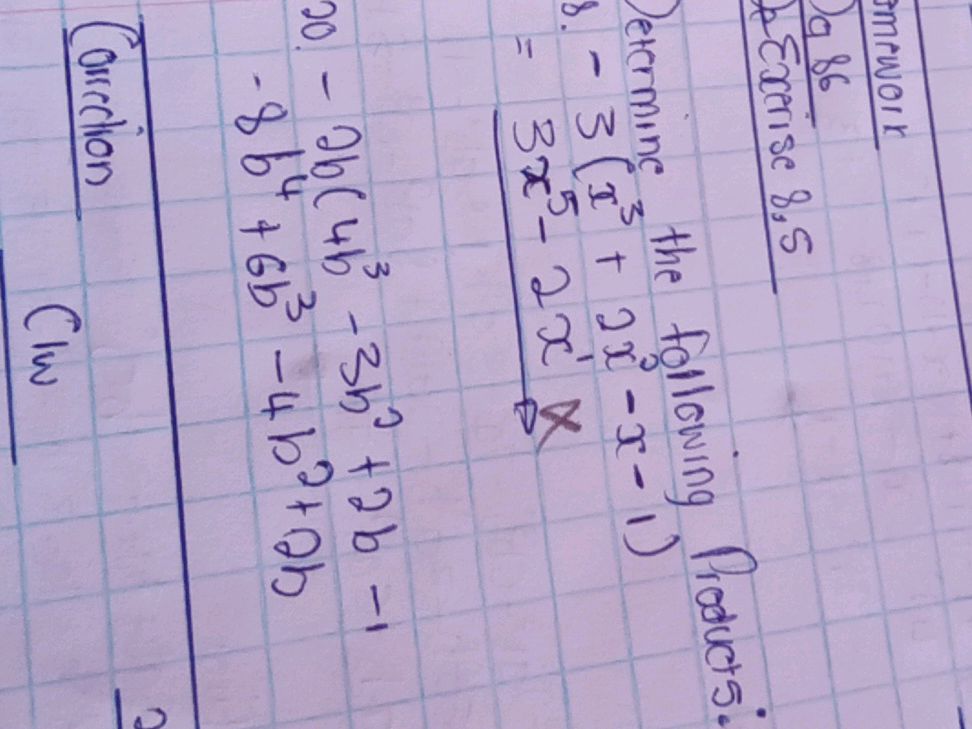 omework
Pg 86
Exerise 8,5
Determine the following Products.
8. - 3(x³ + 2x² - x - 1)
= 3x⁵ - 2x¹
20. - 2b(4b³ - 3b² + 2b - 1
- 8b⁴ + 6b³ - 4b² + 2b
Correction
C/w